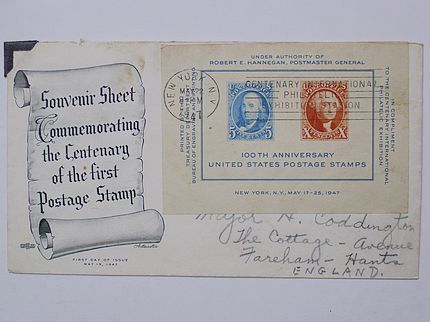 Souvenir Sheet
Commemorating
the Centenary
of the first
Postage Stamp
FIRST DAY OF ISSUE
MAY 19, 1947
UNDER AUTHORITY OF
ROBERT E. HANNEGAN, POSTMASTER GENERAL
PRINTED BY THE
TREASURY DEPARTMENT
BUREAU OF ENGRAVING AND PRINTING
IN COMPLIMENT
TO THE CENTENARY INTERNATIONAL
PHILATELIC EXHIBITION
NEW YORK N.Y.
MAY
1947
CENTENARY INTERNATIONAL
PHILATELIC
EXHIBITION STATION
5 5
X X
100TH ANNIVERSARY
UNITED STATES POSTAGE STAMPS
NEW YORK, N.Y., MAY 17-25, 1947
Major H. Coddington
The Cottage - Avenue
Fareham - Hants
ENGLAND.